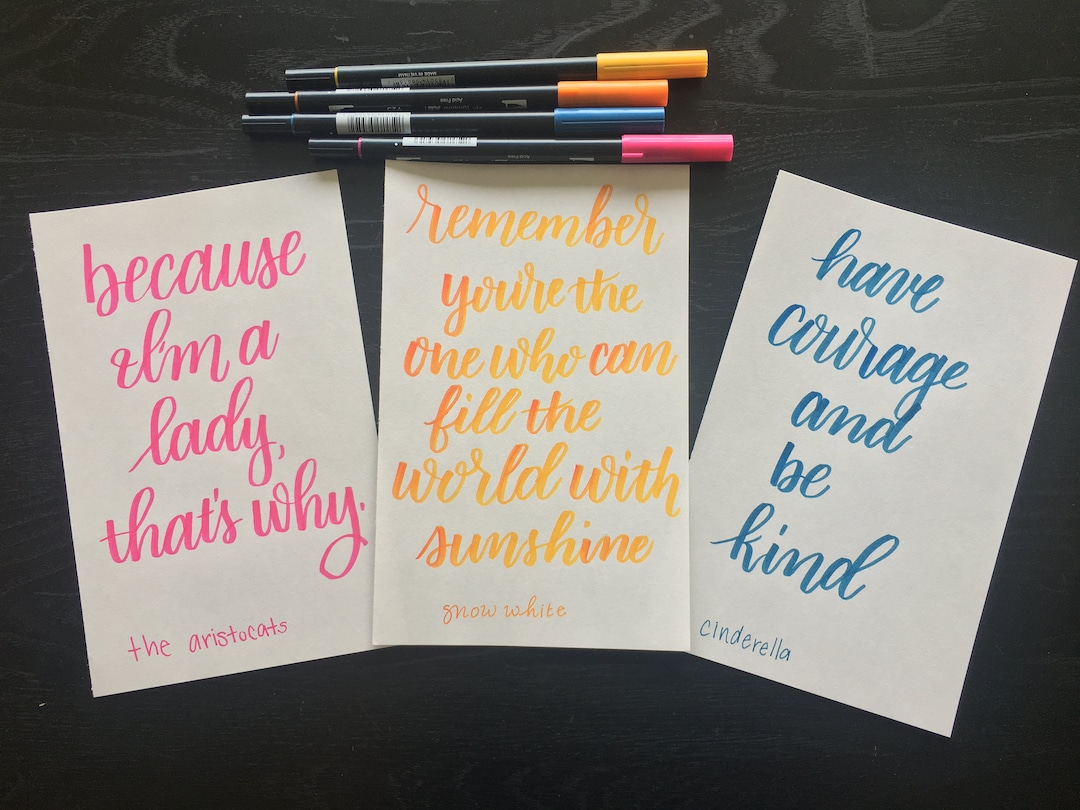 MADE IN VIETNAM
Acid Free
Acid Free
because
I'm a
lady,
that's why.
the aristocats
remember
you're the
one who can
fill the
world with
sunshine
snow white
have
courage
and
be
kind
cinderella